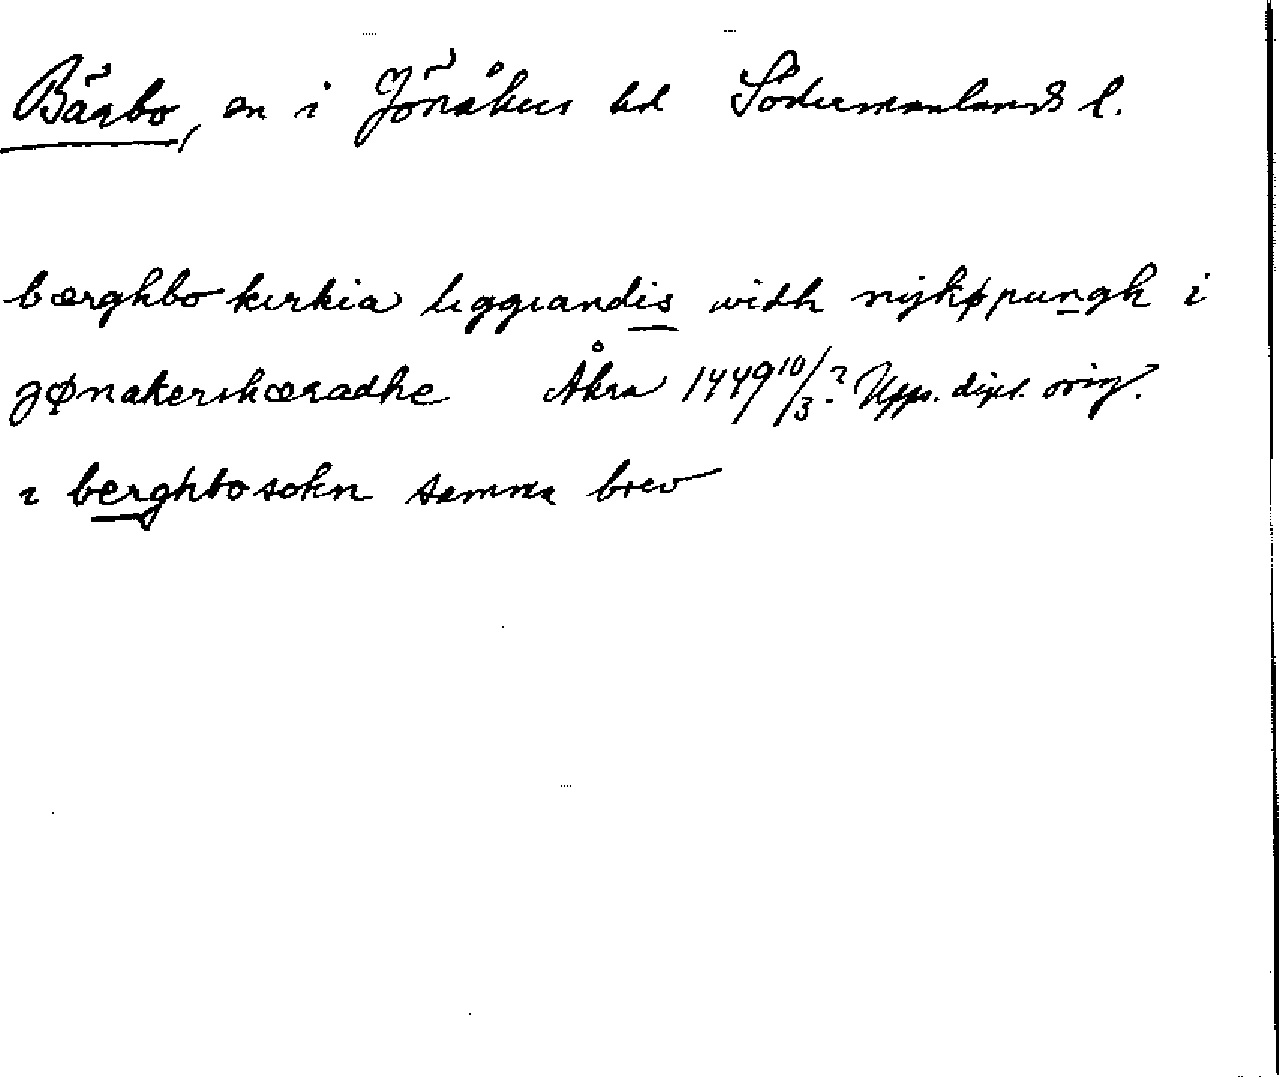 Bärbo, sn i Jönåkers hd Södermanlands l.
bærghbo kirkia liggiandis widh nykøpungh i
jønakershæradhe Åkra 1449 10/3? Upps. dipl. orig.
i berghbo sokn samma brev